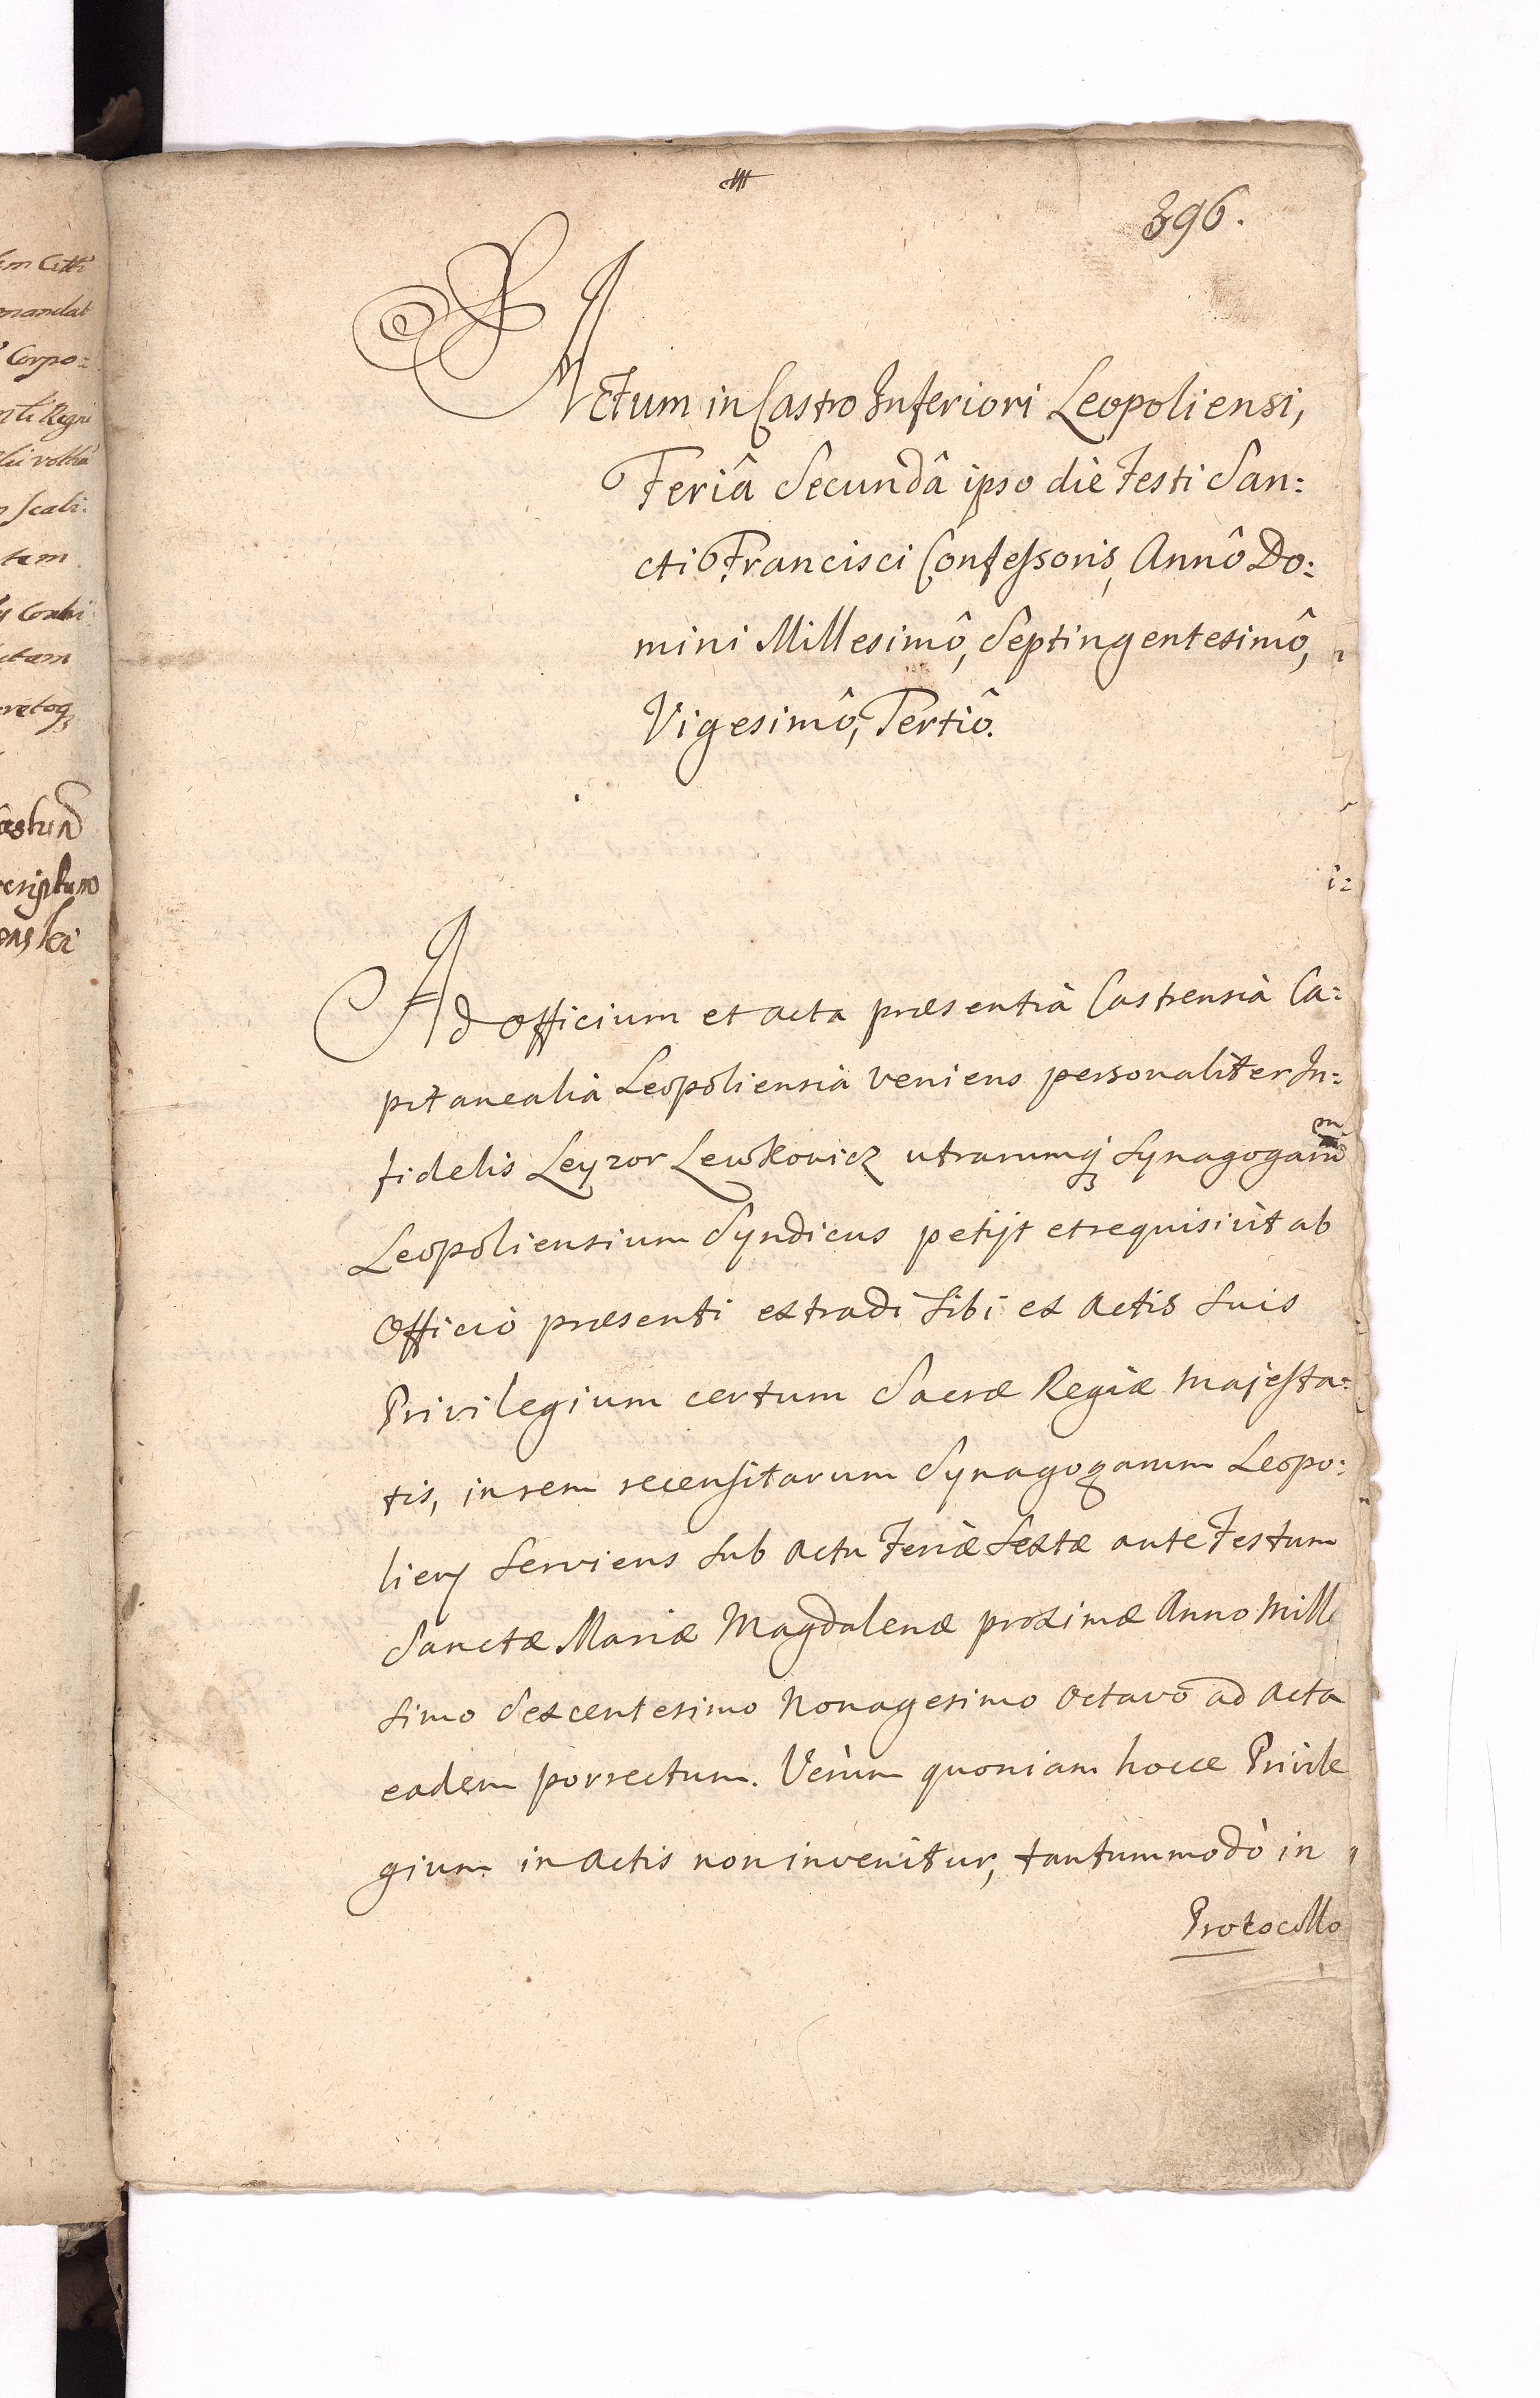 396.
Actum in Castro Inferiori Leopoliensi,
Feriâ Secundâ ipso die Festi San:
cti Francisci Confessoris, Annô Do:
mini Millesimô, Septingentesimô,
Vigesimô, Tertiô.
Ad Officium et acta præsentia Castrensia Ca:
pitanealia Leopoliensia veniens personaliter In:
fidelis Leyzor Lewkowicz utrarumq Synagogarum
Leopoliensium Syndicus petijt et requisivit ab
Officio præsenti extradi sibi ex Actis suis
Privilegium certum Sacræ Regiæ Majesta:
tis, in rem recensitarum Synagogarum Leopo:
lien serviens sub Actu Feriæ Sextæ ante Festum
Sanctæ Mariæ Magdalenæ proximæ Anno Mille
simo Sexcentesimo Nonagesimo Octavo ad Acta
eadem porrectum. Verum quoniam hocce Privile
gium in Actis non invenitur, tantummodò in
Protocollo
em
mandat
Corpo:
Regni
scali.
tam